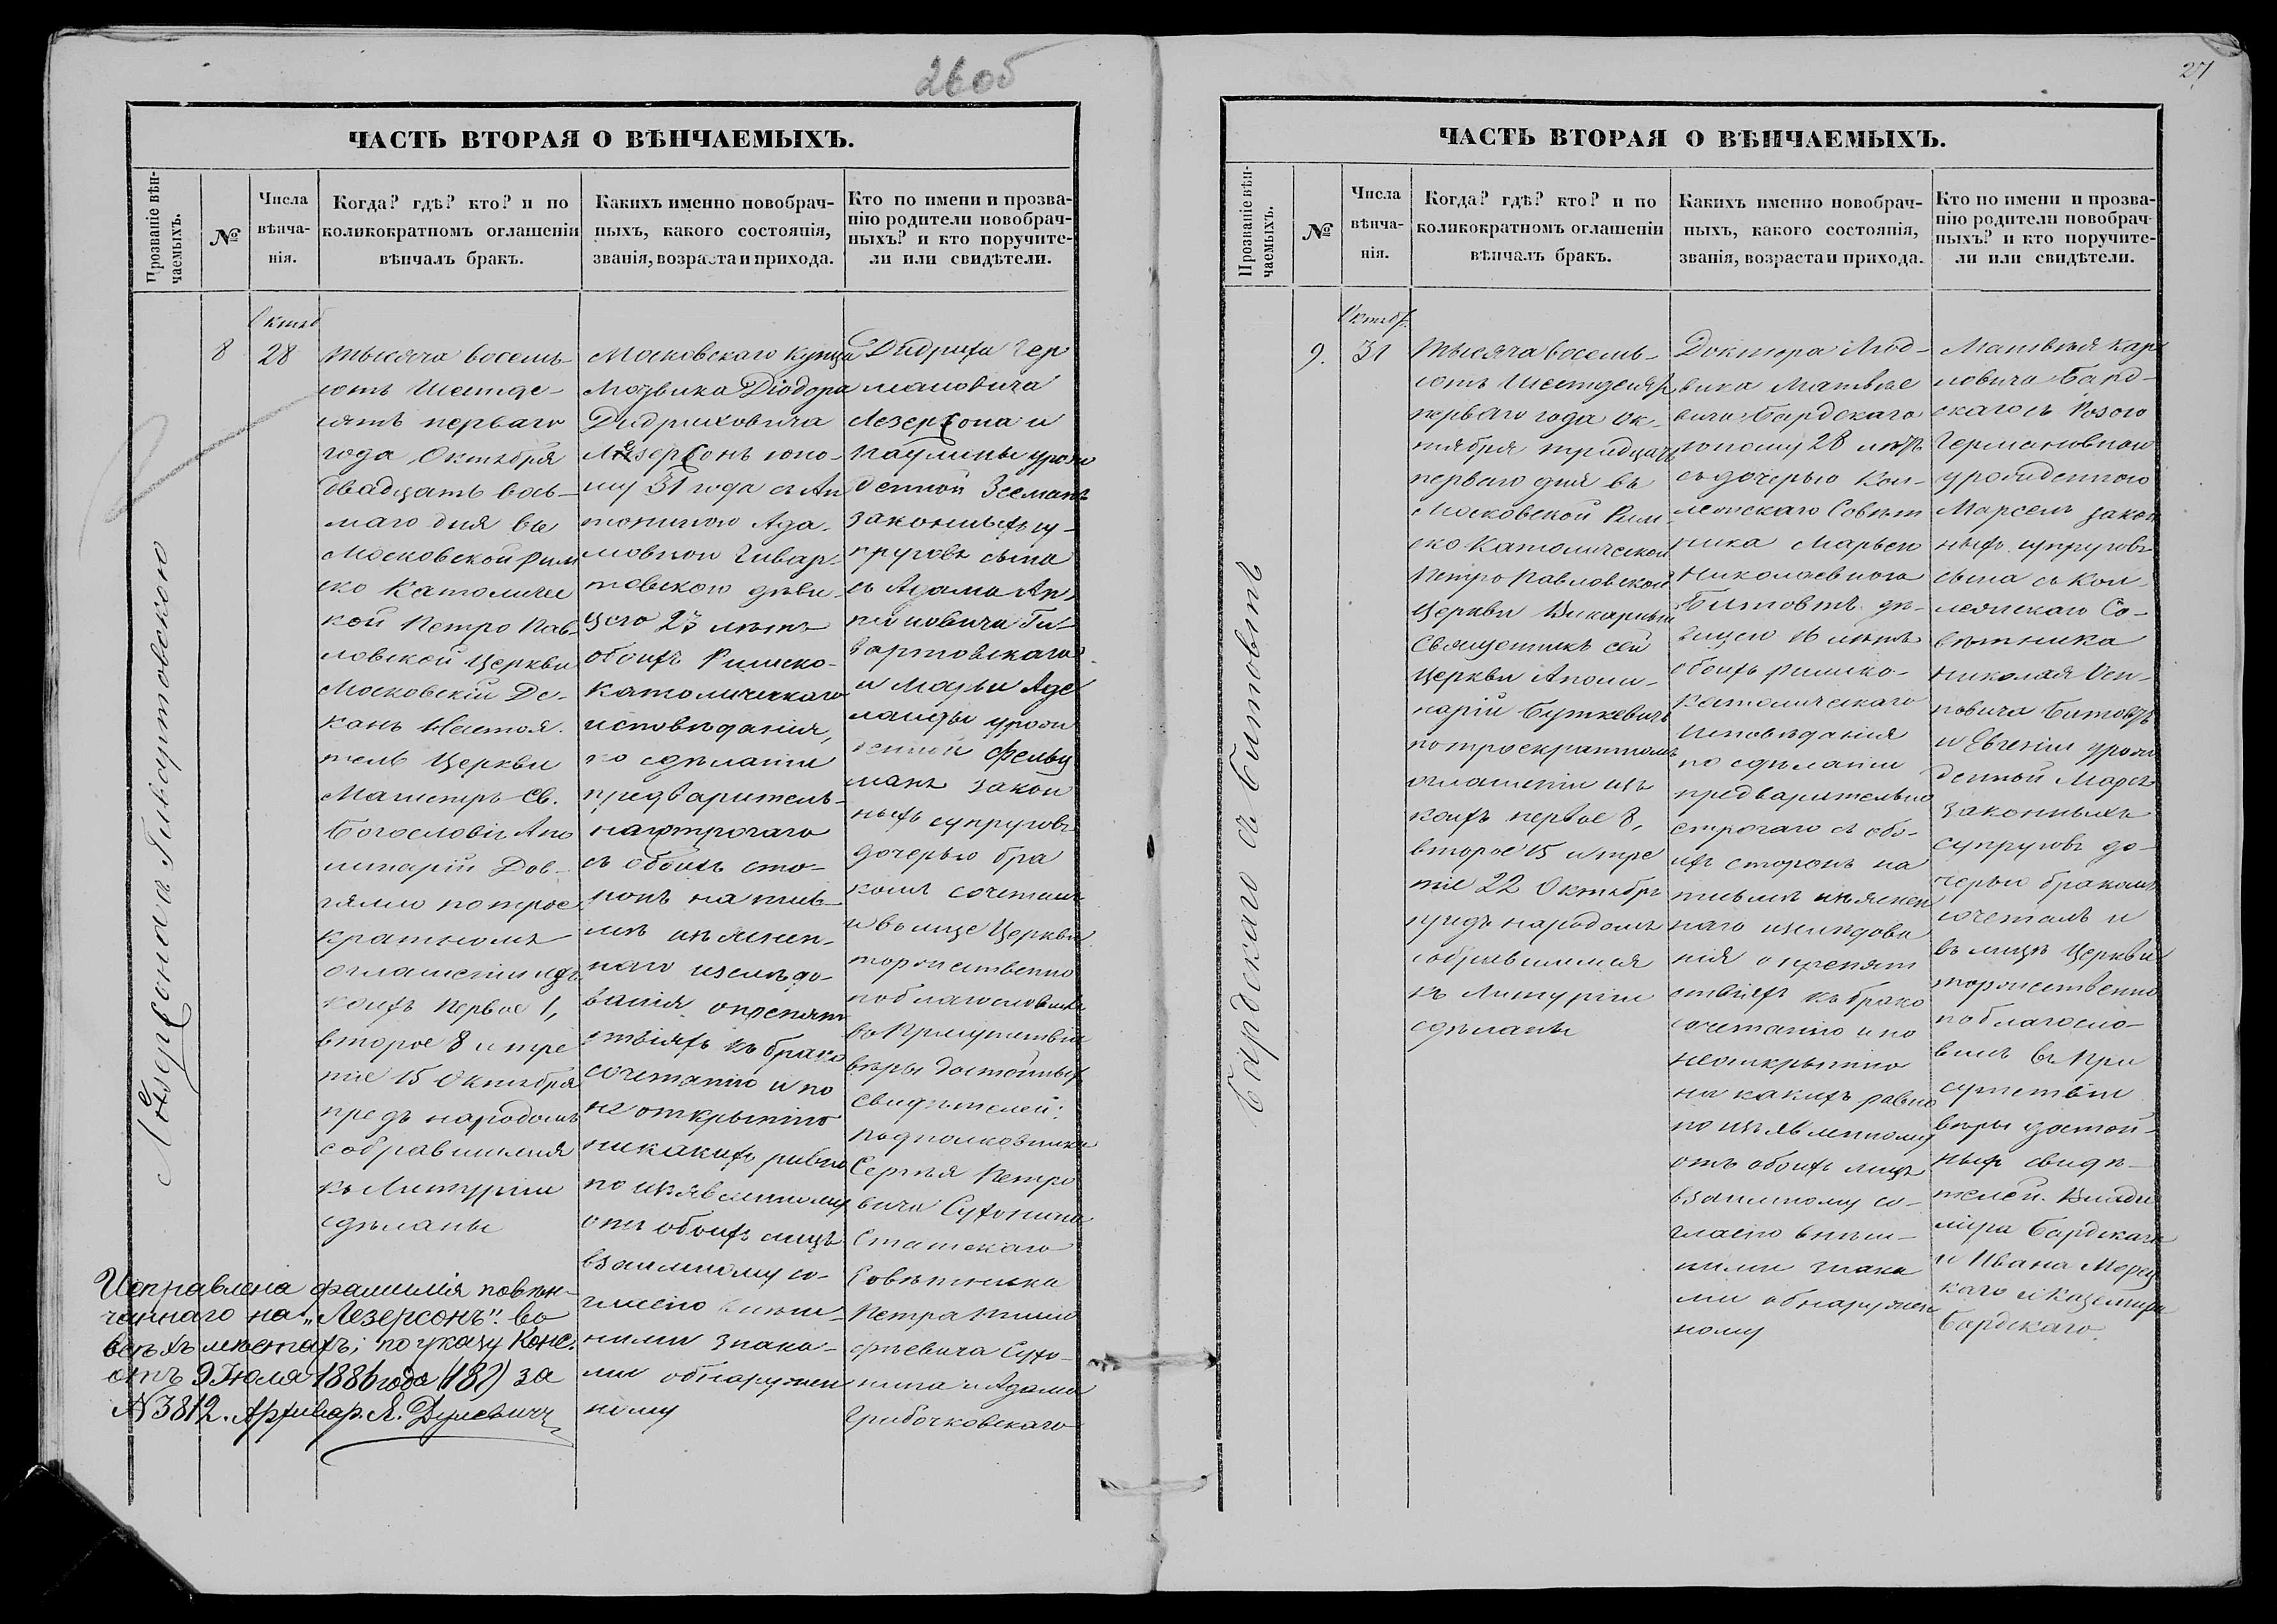 26 об
ЧАСТЬ ВТОРАЯ О ВѢНЧАЕМЫХЪ.
Прозваніе вѣн-
чаемыхъ.
№
Числа
вѣнча-
нія.
Когда? гдѣ? кто? и по
коликократномъ оглашеніи
вѣнчалъ бракъ.
Какихъ именно новобрач-
ныхъ, какого состоянія,
званія, возраста и прихода.
Кто по имени и прозва-
нію родители новобрач-
ныхъ? и кто поручите-
ли или свидѣтели.
Лезерсона съ Гивартовскою
8
Октяб
28
Тысяча восемь
сотъ шестьде-
сятъ перваго
года Октября
двадцать вось-
маго дня въ
Московской Рим
ско Католичес
кой Петро Пав-
ловской Церкви
Московскій Де-
канъ Настоя-
тель Церкви
Магистръ Св.
Богословія Апо
линарій Дов-
гялло по трое
кратномъ
оглашеніи изъ
коихъ первое 1,
второе 8 и тре
тіе 15 Октября
предъ народомъ
собравшимся
къ Литургіи
сдѣланы
Московскаго Купца
Людвика Діодора
Дидриховича
Лезерсонъ юно-
шу 31 года съ Ан
тониною Ада-
мовною Гивар-
товскою дѣви-
цею 23 лѣтъ
обоихъ Римско-
Католическаго
исповѣданія,
по сдѣланіи
предваритель-
наго строгаго
съ обоихъ сто-
ронъ на пись-
мѣ изъяснен-
наго изслѣдо-
ванія о препят
ствіяхъ къ брако
сочетанію и по
не открытію
никакихъ равно
по изъявленному
отъ обоихъ лицъ
взаимному со-
гласію внѣш-
ними знака-
ми обнаружен
ному
Дидриха Гер
мановича
Лезерсона и
Паулины урож
денной Зееманъ
законныхъ су-
пруговъ сына
съ Адама Ан,
тоновича Ги-
вартовскаго
и Маріи Аде
лаиды урож
денной Фельц
манъ закон
ныхъ супруговъ
дочерью бра
комъ сочеталъ
и въ лице Церкви
торжественно
поблагословилъ
въ присутствіи
вѣры достойныхъ
свидѣтелей:
подполковника
Сергѣя Петро
вича Сухонина
Статскаго
Совѣтника
Петра
Сухо-
нина и Адама
Грибочковскаго
Исправлена фамилія повѣн-
чаннаго на „Лезерсонъ" во
всѣхъ мѣстахъ; по указу Конс.
отъ 9 Іюля 1886 года (187) за
№ 3812. Архивар. А. Дулевичъ
27
ЧАСТЬ ВТОРАЯ О ВѢНЧАЕМЫХЪ.
Прозваніе вѣн-
чаемыхъ.
№
Числа
вѣнча-
нія.
Когда? гдѣ? кто? и по
коликократномъ оглашеніи
вѣнчалъ бракъ.
Какихъ именно новобрач-
ныхъ, какого состоянія,
званія, возраста и прихода.
Кто по имени и прозва-
нію родители новобрач-
ныхъ? и кто поручите-
ли или свидѣтели.
Бардскаго съ Битовтъ
9.
Октяб.
31
Тысяча восемь-
сотъ шестдесятъ
перваго года Ок-
тября тридцать
перваго дня въ
Московской Рим
ско Католической
Петро Павловской
Церкви Викарный
Священникъ сей
Церкви Аполи-
нарій Буткевичъ
по троекратномъ
оглашеніи изъ
коихъ первое 8,
второе 15 и тре
тіе 22 Октября
предъ народомъ
собравшимся
къ Литургіи
сдѣланы
Доктора Люд-
вика Матвѣе
вича Бардскаго
юношу 28 лѣтъ
съ дочерью Кол-
лежскаго Совѣт
ника Марьею
Николаевною
Битовтъ дѣ-
вицею 16 лѣтъ
обоихъ римско-
католическаго
исповѣданія
по сдѣланіи
предварительно
строгаго съ обо-
ихъ сторонъ на
письмѣ изъяснен
наго изслѣдова
нія о препят
ствіяхъ къ брако
сочетанію и по
неоткрытію
ни какихъ равно
по изъявленному
отъ обоихъ лицъ
взаимному со-
гласію внѣш-
ними знака
ми обнаружен
ному
Матвѣя Кар
ловича Бард-
скаго съ Розою
Германовною
урожденною
Марсель закон
ныхъ супруговъ
сына съ Кол-
лежскаго Со-
вѣтника
Николая Оси-
повича Битовтъ
и Евгеніи урож
денной
законныхъ
супруговъ до-
черью бракомъ
сочеталъ и
въ лицѣ Церкви
торжественно
поблагосло-
вилъ въ при
сутствіи
вѣры достой-
ныхъ свидѣ-
телей. Влади
міра Бардскаго
и Ивана Морец
каго и Казимира
Бардскаго.